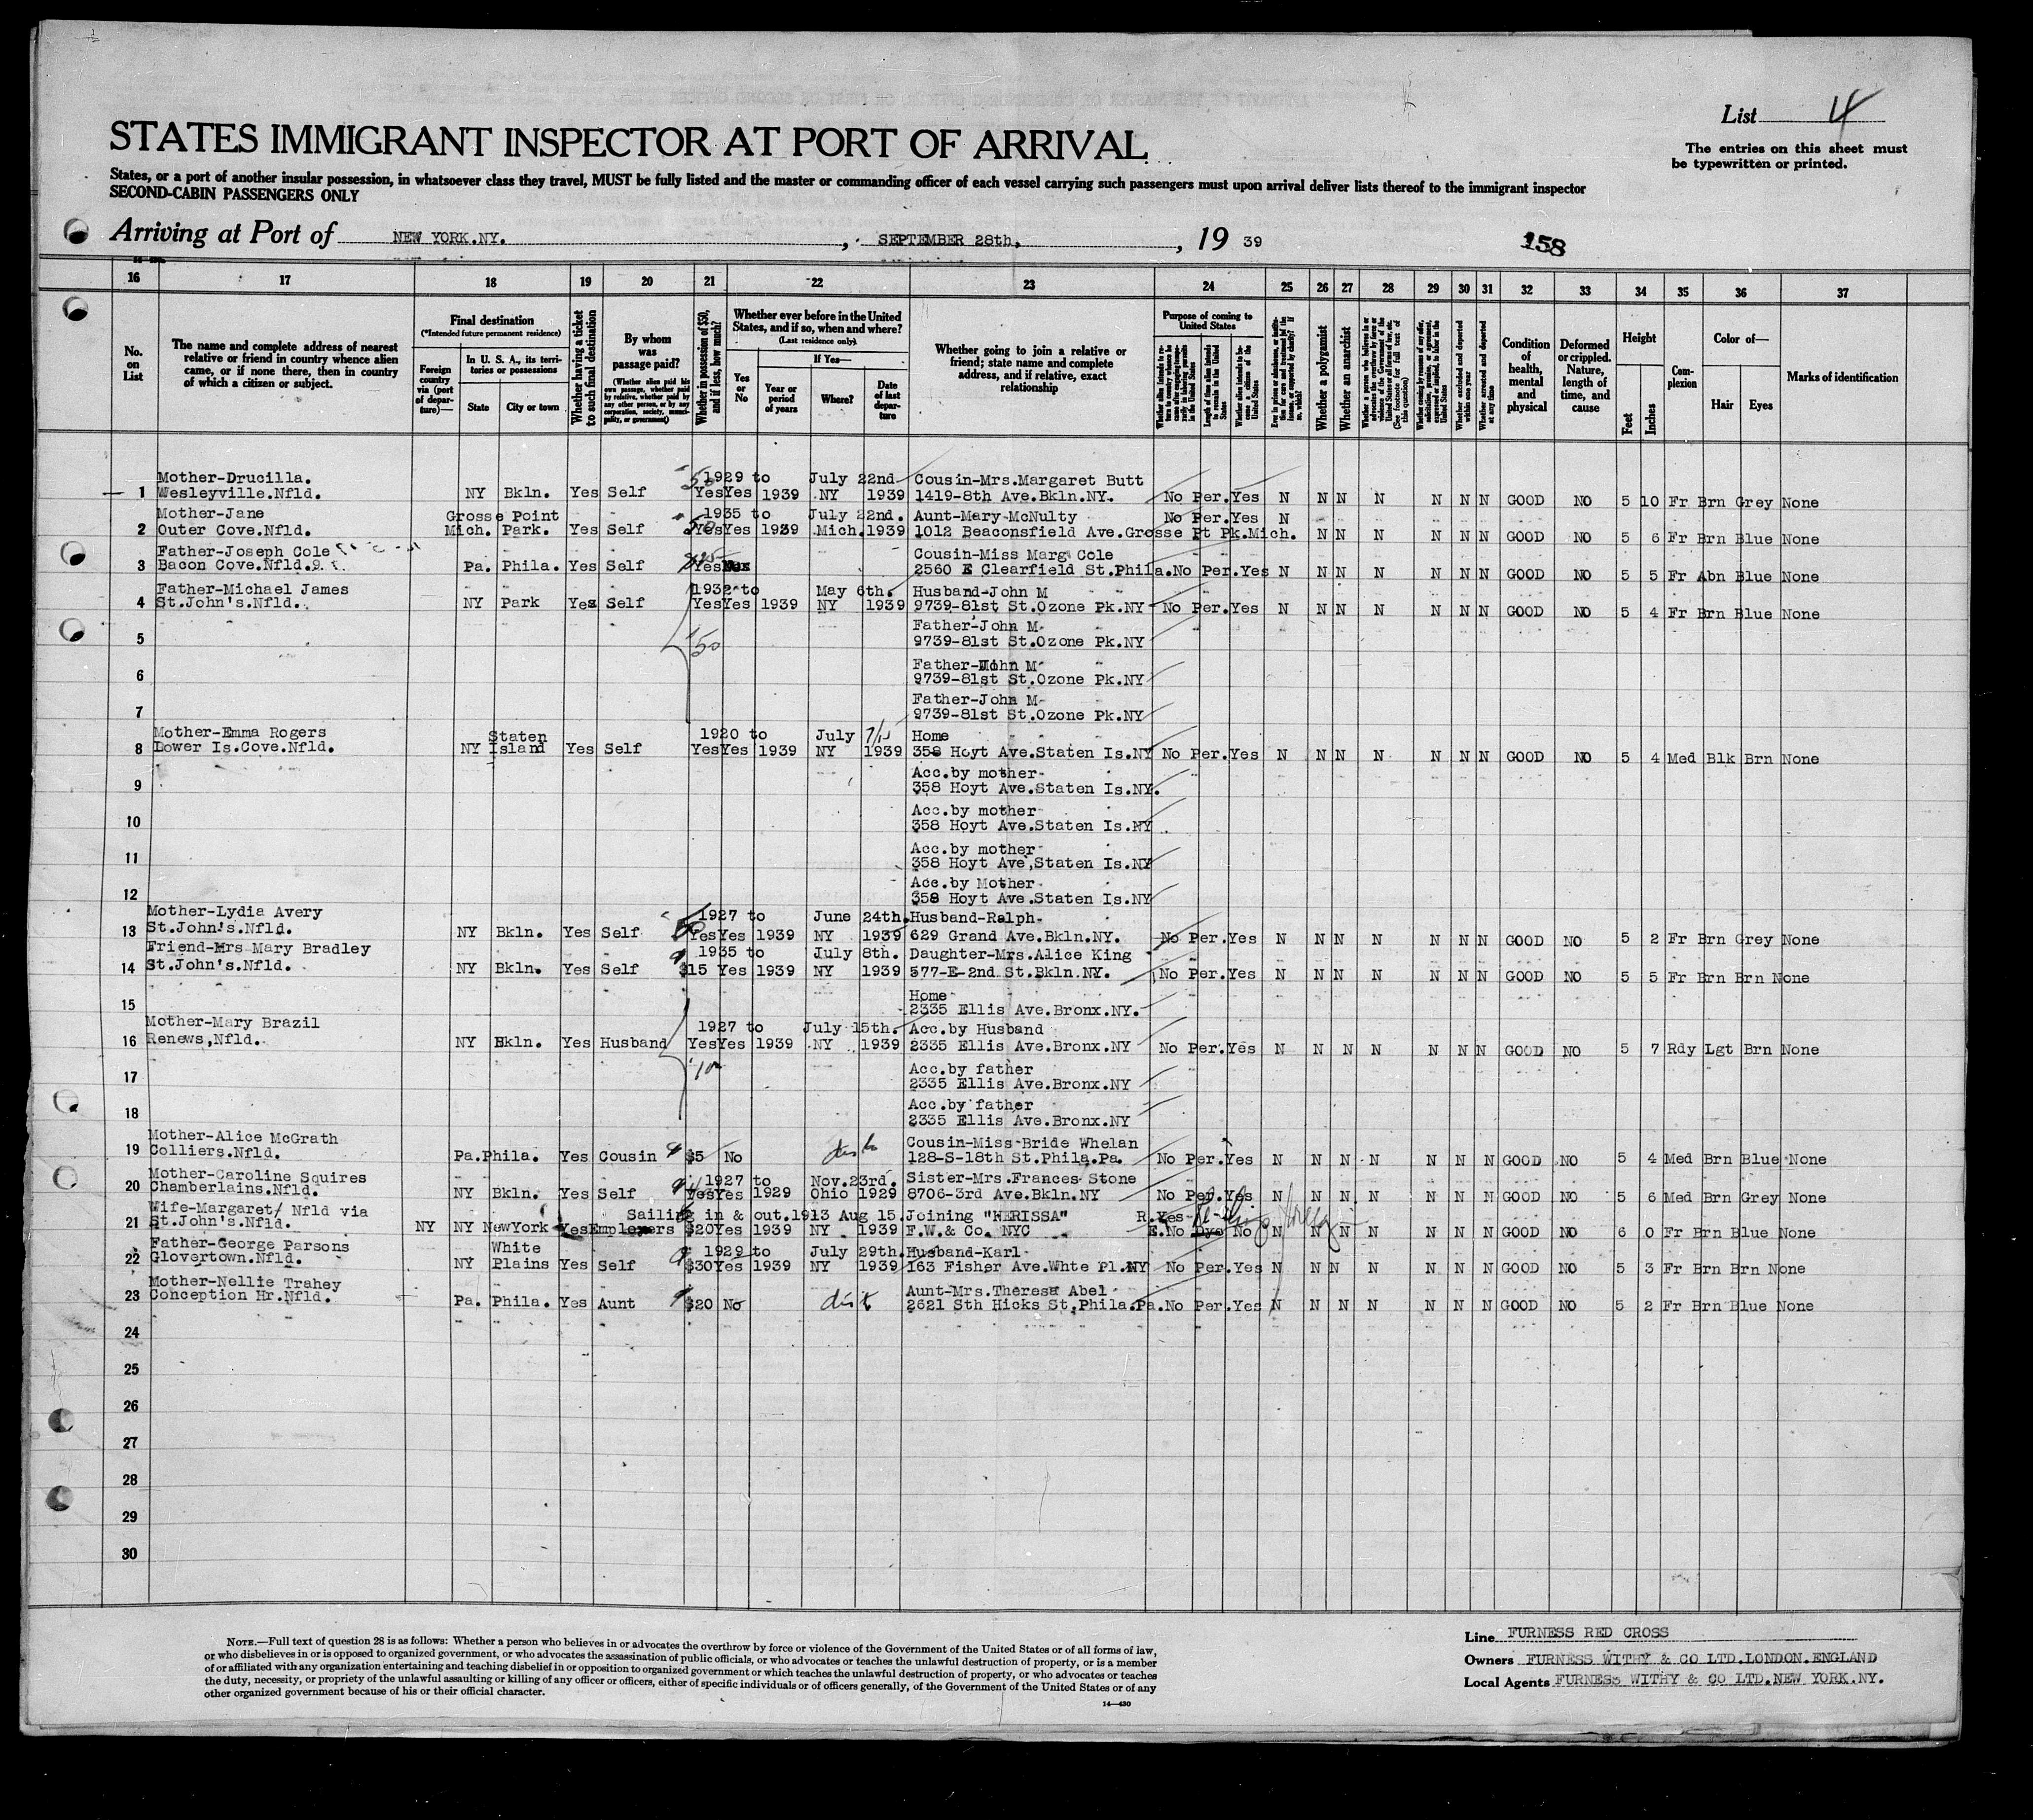 List 4
STATES IMMIGRANT INSPECTOR AT PORT OF ARRIVAL
The entries on this sheet must
be typewritten or printed.
States, or a port of another insular possession, in whatsoever class they travel, MUST be fully listed and the master or commanding officer of each vessel carrying such passengers must upon arrival deliver lists thereof to the immigrant inspector
SECOND-CABIN PASSENGERS ONLY
Arriving at Port of NEW YORK.NY. , SEPTEMBER 28th, , 19 39
158
16 17 18 19 20 21 22 23 24 25 26 27 28 29 30 31 32 33 34 35 36 37
No. on List
The name and complete address of nearest relative or friend in country whence alien came, or if none there, then in country of which a citizen or subject.
Final destination
(*Intended future permanent residence)
Foreign country via (port of departure)—
In U. S. A., its territories or possessions
State
City or town
Whether having a ticket to such final destination
By whom was passage paid?
(Whether alien paid his own passage, whether paid by relative, whether paid by any other person, or by any corporation, society, municipality, or government)
Whether in possession of $50, and if less, how much?
Whether ever before in the United States, and if so, when and where?
(Last residence only)
Yes or No
If Yes—
Year or period of years
Where?
Date of last departure
Whether going to join a relative or friend; state name and complete address, and if relative, exact relationship
Purpose of coming to United States
Whether alien intends to return to country whence he came after engaging temporarily in laboring pursuits in the United States
Length of time alien intends to remain in the United States
Whether alien intends to become a citizen of the United States
Whether a polygamist
Whether an anarchist
Whether excluded and deported within one year
Whether arrested and deported at any time
Condition of health, mental and physical
Deformed or crippled. Nature, length of time, and cause
Height
Feet
Inches
Complexion
Color of—
Hair
Eyes
Marks of identification
Mother-Drucilla. 50 1929 to July 22nd Cousin-Mrs.Margaret Butt
1 Wesleyville.Nfld. NY Bkln. Yes Self Yes Yes 1939 NY 1939 1419-8th Ave.Bkln.NY. No Per.Yes N N N N N N N GOOD NO 5 10 Fr Brn Grey None
Mother-Jane Grosse Point 50 1935 to July 22nd. Aunt-Mary McNulty No Per.Yes N
2 Outer Cove.Nfld. Mich. Park. Yes Self Yes Yes 1939 Mich. 1939 1012 Beaconsfield Ave.Grosse Pt Pk.Mich. N N N N N N GOOD NO 5 6 Fr Brn Blue None
Father-Joseph Cole Cousin-Miss Marg Cole
3 Bacon Cove.Nfld. Pa. Phila. Yes Self Yes 2560 E Clearfield St.Phila.No Per.Yes N N N N N N N GOOD NO 5 5 Fr Abn Blue None
Father-Michael James 1932 to May 6th. Husband-John M
4 St.John's.Nfld. NY Park Yes Self Yes Yes 1939 NY 1939 9739-81st St.Ozone Pk.NY No Per.Yes N N N N N N N GOOD NO 5 4 Fr Brn Blue None
Father-John M
5 50 9739-81st St.Ozone Pk.NY
Father-John M
6 9739-81st St.Ozone Pk.NY
Father-John M
7 9739-81st St.Ozone Pk.NY
Mother-Emma Rogers Staten 1920 to July 7/15 Home
8 Lower Is.Cove.Nfld. NY Island Yes Self Yes Yes 1939 NY 1939 358 Hoyt Ave.Staten Is.NY No Per.Yes N N N N N N N GOOD NO 5 4 Med Blk Brn None
Acc.by mother
9 358 Hoyt Ave.Staten Is.NY.
Acc.by mother
10 358 Hoyt Ave.Staten Is.NY
Acc.by mother
11 358 Hoyt Ave,Staten Is.NY
Acc.by Mother
12 358 Hoyt Ave.Staten Is.NY
Mother-Lydia Avery 50 1927 to June 24th.Husband-Ralph
13 St.John's.Nfld. NY Bkln. Yes Self Yes Yes 1939 NY 1939 629 Grand Ave.Bkln.NY. No Per.Yes N N N N N N N GOOD NO 5 2 Fr Brn Grey None
Friend-Mrs Mary Bradley 1935 to July 8th. Daughter-Mrs.Alice King
14 St.John's.Nfld. NY Bkln. Yes Self $15 Yes 1939 NY 1939 577-E-2nd St.Bkln.NY. No Per.Yes N N N N N N N GOOD NO 5 5 Fr Brn Brn None
Home
15 2335 Ellis Ave.Bronx.NY.
Mother-Mary Brazil 1927 to July 15th. Acc.by Husband
16 Renews,Nfld. NY Bkln. Yes Husband Yes Yes 1939 NY 1939 2335 Ellis Ave.Bronx.NY No Per.Yes N N N N N N N GOOD NO 5 7 Rdy Lgt Brn None
Acc.by father
17 2335 Ellis Ave.Bronx.NY
Acc.by father
18 2335 Ellis Ave.Bronx.NY
Mother-Alice McGrath Cousin-Miss Bride Whelan
19 Colliers.Nfld. Pa.Phila. Yes Cousin $5 No 128-S-18th St.Phila.Pa. No Per.Yes N N N N N N N GOOD NO 5 4 Med Brn Blue None
Mother-Caroline Squires 1927 to Nov.23rd. Sister-Mrs.Frances Stone
20 Chamberlains.Nfld. NY Bkln. Yes Self Yes Yes 1929 Ohio 1929 8706-3rd Ave.Bkln.NY No Per.Yes N N N N N N N GOOD NO 5 6 Med Brn Grey None
Wife-Margaret/ Nfld via Sailing in & out.1913 Aug 15.Joining "NERISSA" R.Yes
21 St.John's.Nfld. NY NY NewYork Yes Employers $20 Yes 1939 NY 1939 F.W.& Co. NYC E.No Dys No N N N N N N GOOD NO 6 0 Fr Brn Blue None
Father-George Parsons White 1929 to July 29th.Husband-Karl
22 Glovertown.Nfld. NY Plains Yes Self $30 Yes 1939 NY 1939 163 Fisher Ave.Whte Pl.NY No Per.Yes N N N N N N N GOOD NO 5 3 Fr Brn Brn None
Mother-Nellie Trahey Aunt-Mrs.Theresa Abel
23 Conception Hr.Nfld. Pa. Phila. Yes Aunt $20 No 2621 Sth Hicks St.Phila.Pa.No Per.Yes N N N N N N N GOOD NO 5 2 Fr Brn Blue None
24
25
26
27
28
29
30
NOTE.—Full text of question 28 is as follows: Whether a person who believes in or advocates the overthrow by force or violence of the Government of the United States or of all forms of law,
or who disbelieves in or is opposed to organized government, or who advocates the assassination of public officials, or who advocates or teaches the unlawful destruction of property, or is a member
of or affiliated with any organization entertaining and teaching disbelief in or opposition to organized government or which teaches the unlawful destruction of property, or who advocates or teaches
the duty, necessity, or propriety of the unlawful assaulting or killing of any officer or officers, either of specific individuals or of officers generally, of the Government of the United States or of any
other organized government because of his or their official character.
14—430
Line FURNESS RED CROSS
Owners FURNESS WITHY & CO LTD.LONDON.ENGLAND
Local Agents FURNESS WITHY & CO LTD.NEW YORK.NY.